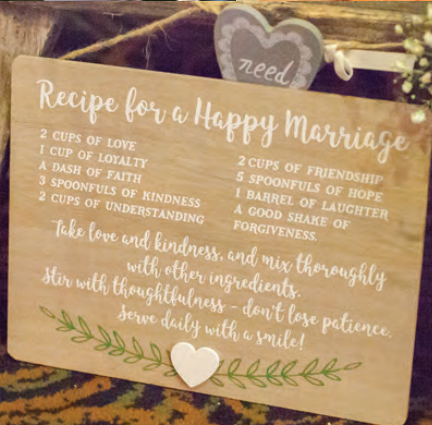 need
Recipe for a Happy Marriage
2 CUPS OF LOVE
1 CUP OF LOYALTY
A DASH OF FAITH
3 SPOONFULS OF KINDNESS
2 CUPS OF UNDERSTANDING
2 CUPS OF FRIENDSHIP
5 SPOONFULS OF HOPE
1 BARREL OF LAUGHTER
A GOOD SHAKE OF
FORGIVENESS.
Take love and kindness, and mix thoroughly
with other ingredients.
Stir with thoughtfulness - don't lose patience.
Serve daily with a smile!